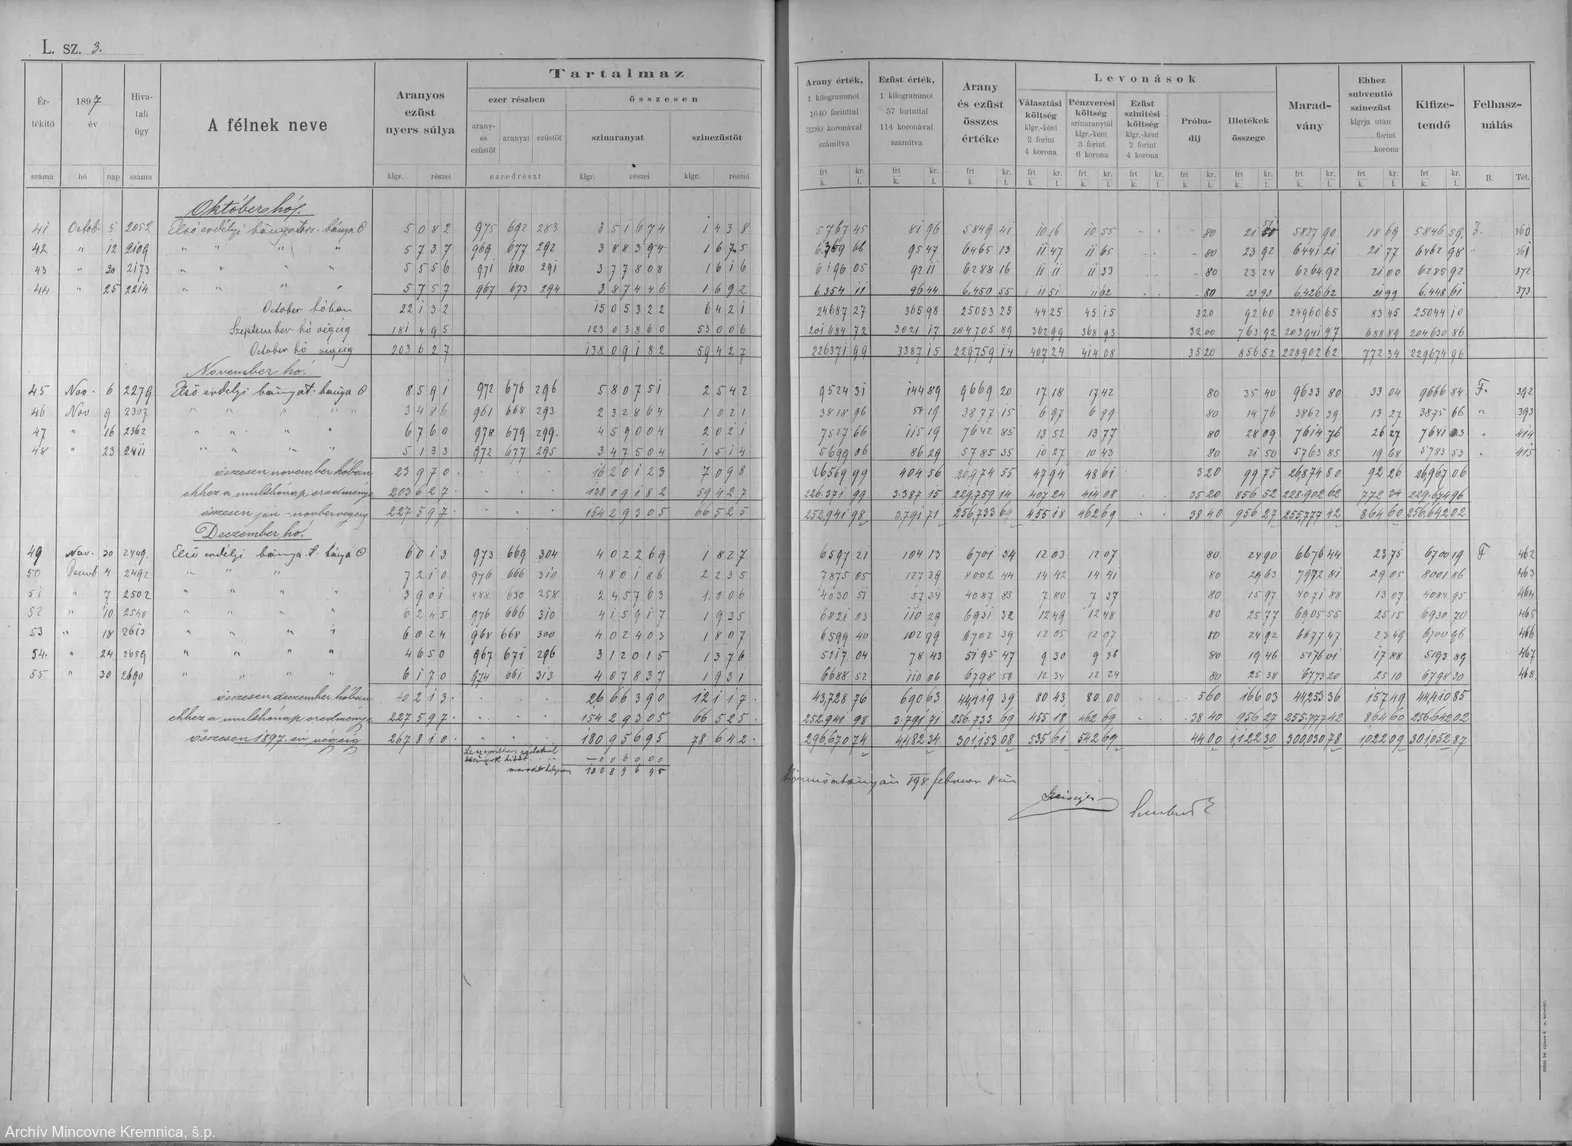 L. sz. 3.
Értékítő száma
1897 év
hó
nap
Hivatali ügy száma
A félnek neve
Aranyos ezüst nyers súlya
klgr. részei
Tartalmaz
ezer részben
arany- és ezüstöt
aranyat
ezüstöt
ezredrészt
összesen
szinaranyat
klgr. részei
szinezüstöt
klgr. részei
Arany érték, 1 kilogrammot 1640 forinttal 3280 koronával számítva
Ezüst érték, 1 kilogrammot 57 forinttal 114 koronával számítva
Arany és ezüst összes értéke
Levonások
Választási költség klgr.-ként 2 forint 4 korona
Pénzverési költség szinaranytól klgr.-ként 3 forint 6 korona
Ezüst szinítési költség klgr.-ként 2 forint 4 korona
Próbadíj
Illetékek összege
Maradvány
Ehhez subventió szinezüst klgrja után forint korona
Kifizetendő
Felhasználás
frt kr.
k. f.
B. Tét.
Október hó.
41 Octob. 5 2052 Első erdélyi 5082 975 692 283 3 51674 1438 5767 45 81 96 5849 41 10 16 10 55 - - 80 5827 90 18 69 5846 59 360
42 " 12 2109 " " " 5737 969 677 292 3 88394 1675 95 47 6465 13 11 47 11 65 - - 80 23 92 6441 21 21 77 6462 98 361
43 " 20 2173 " " " 5556 971 680 291 3 77808 1616 6196 05 92 11 6288 16 11 11 11 33 - - 80 23 24 6264 92 21 00 6285 92 372
44 " 25 2214 " " " 5757 967 673 294 3 87446 1692 6354 11 96 44 6450 55 11 51 11 62 - - 80 23 93 6426 62 21 99 6448 61 373
October hóban 22132 15 05322 6421 24687 27 365 98 25053 25 44 25 45 15 3 20 92 60 24960 65 83 45 25044 10
Szeptember hó végeig 181495 123 03860 53006 201684 72 3021 17 204705 89 362 99 368 93 32 00 763 92 203941 97 688 89 204630 86
October hó végeig 203627 138 09182 59427 226371 99 3387 15 229759 14 407 24 414 08 35 20 856 52 228902 62 772 34 229674 96
November hó.
45 Nov. 6 2279 Első erdélyi bányat. bánya 8591 972 676 296 5 80751 2542 9524 31 144 89 9669 20 17 18 17 42 80 35 40 9633 80 33 04 9666 84 F. 392
46 Nov 9 2307 " " " " 3486 961 668 293 2 32864 1021 3818 96 58 19 3877 15 6 97 6 99 80 14 76 3862 39 13 27 3875 66 " 393
47 " 16 2362 " " " 6760 978 679 299 4 59004 2021 7527 66 115 19 7642 85 13 52 13 77 80 28 09 7614 76 26 27 7641 03 " 414
48 " 23 2411 " " " 5133 972 677 295 3 47504 1514 5699 06 86 29 5785 35 10 27 10 43 80 21 50 5763 85 19 68 5783 53 " 415
összesen november hóban 23970 16 20123 7098 26569 99 404 56 26974 55 47 94 48 61 3 20 99 75 26874 80 92 26 26967 06
ehhez a multhónap eredménye 203627 138 09182 59427 226371 99 3387 15 229759 14 407 24 414 08 35 20 856 52 228902 62 772 34 229674 96
összesen 227597 154 29305 66525 252941 98 3791 71 256733 69 455 18 462 69 38 40 956 27 255777 42 864 60 256642 02
Deczember hó.
49 Nov. 30 2449 Első erdélyi bánya t. bánya 6013 973 669 304 4 02269 1827 6597 21 104 13 6701 34 12 03 12 07 80 24 90 6676 44 23 75 6700 19 F 462
50 Decemb 4 2492 " " " 7210 976 666 310 4 80186 2235 7875 05 127 39 8002 44 14 42 14 41 80 29 63 7972 81 29 05 8001 86 463
51 " 7 2502 " " " 3901 888 630 258 2 45763 1006 4030 51 57 34 4087 85 7 80 7 37 80 15 97 4071 88 13 07 4084 95 464
52 " 10 2540 " " " 6245 976 666 310 4 15917 1935 6821 03 110 29 6931 32 12 49 12 48 80 25 77 6905 55 25 15 6930 70 465
53 " 18 2613 " " " 6024 968 668 300 4 02403 1807 6599 40 102 99 6702 39 12 05 12 07 80 24 92 6677 47 23 49 6700 96 466
54 " 24 2659 " " " 4650 967 671 296 3 12015 1376 5117 04 78 43 5195 47 9 30 9 36 80 19 46 5176 01 17 88 5193 89 467
55 " 30 2690 " " " 6170 974 661 313 4 07837 1931 6688 52 110 06 6798 58 12 34 12 24 80 25 38 6773 20 25 10 6798 30 468
összesen deczember hóban 40213 26 66390 12117 43728 76 690 63 44419 39 80 43 80 00 5 60 166 03 44253 36 157 49 44410 85
ehhez a multhónap eredménye 227597 154 29305 66525 252941 98 3791 71 256733 69 455 18 462 69 38 40 956 27 255777 42 864 60 256642 02
összesen 1897. év végeig 267810 180 95695 78642 296670 74 4482 34 301153 08 535 61 542 69 44 00 1122 30 300030 78 1022 09 301052 87
- 0 06000
180 89695
Körmöczbányán 1898 februar 8án
Archív Mincovne Kremnica, š.p.